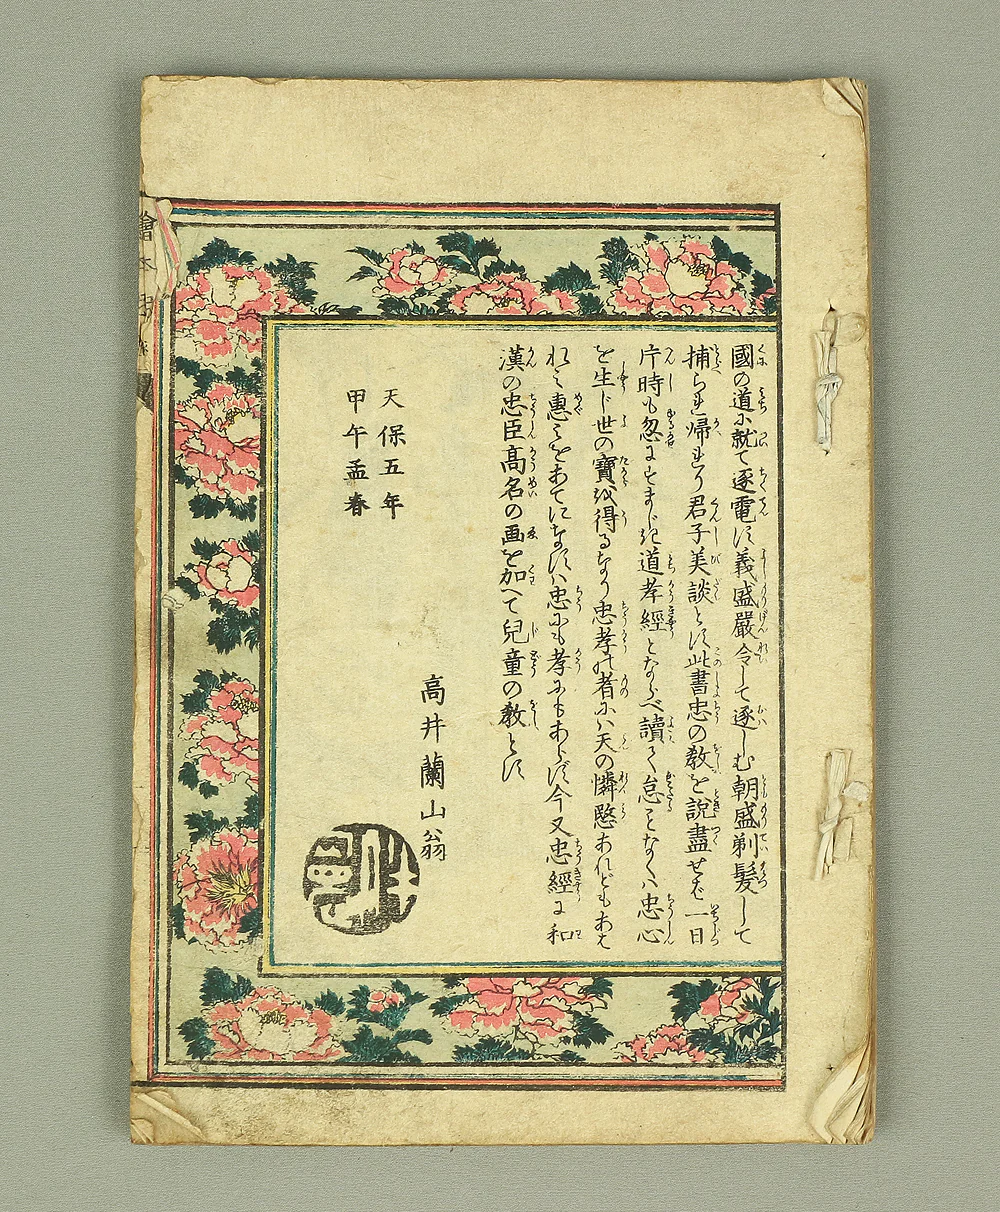 國の道に就て逐電す義盛嚴令して逐しむ朝盛剃髮して
捕られ帰れり君子美談とす此書忠の教を説盡せば一日
片時も忽にすまじき道孝經とならべ讀て怠らなくハ忠心
を生じ世の寶を得るなり忠孝の者にハ天の憐愍あれどもあは
れミ惠ミをあてになすハ忠にも孝にもあらず今又忠經に和
漢の忠臣高名の画を加へて兒童の教とす
高井蘭山翁
天保五年
甲午孟春
繪本